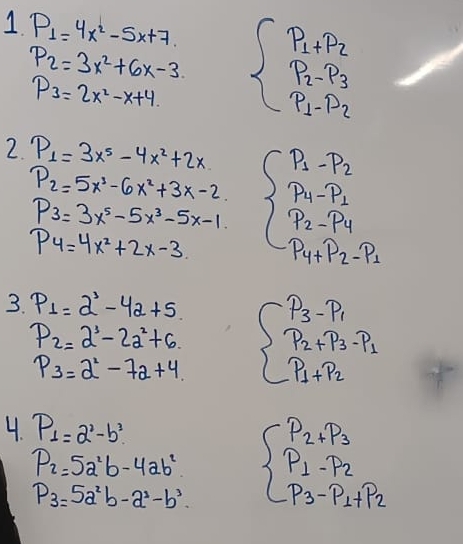 1. P₁ = 4x² - 5x + 7.
P₂ = 3x² + 6x - 3.
P₃ = 2x² - x + 4.
P₁ + P₂
P₂ - P₃
P₁ - P₂
2. P₁ = 3x⁵ - 4x² + 2x.
P₂ = 5x³ - 6x² + 3x - 2.
P₃ = 3x⁵ - 5x³ - 5x - 1.
P₄ = 4x² + 2x - 3.
P₁ - P₂
P₄ - P₁
P₂ - P₄
P₄ + P₂ - P₁
3. P₁ = a³ - 4a + 5.
P₂ = a³ - 2a² + 6.
P₃ = a² - 7a + 4.
P₃ - P₁
P₂ + P₃ - P₁
P₁ + P₂
4. P₁ = a³ - b³.
P₂ = 5a²b - 4ab².
P₃ = 5a²b - a³ - b³.
P₂ + P₃
P₁ - P₂
P₃ - P₁ + P₂